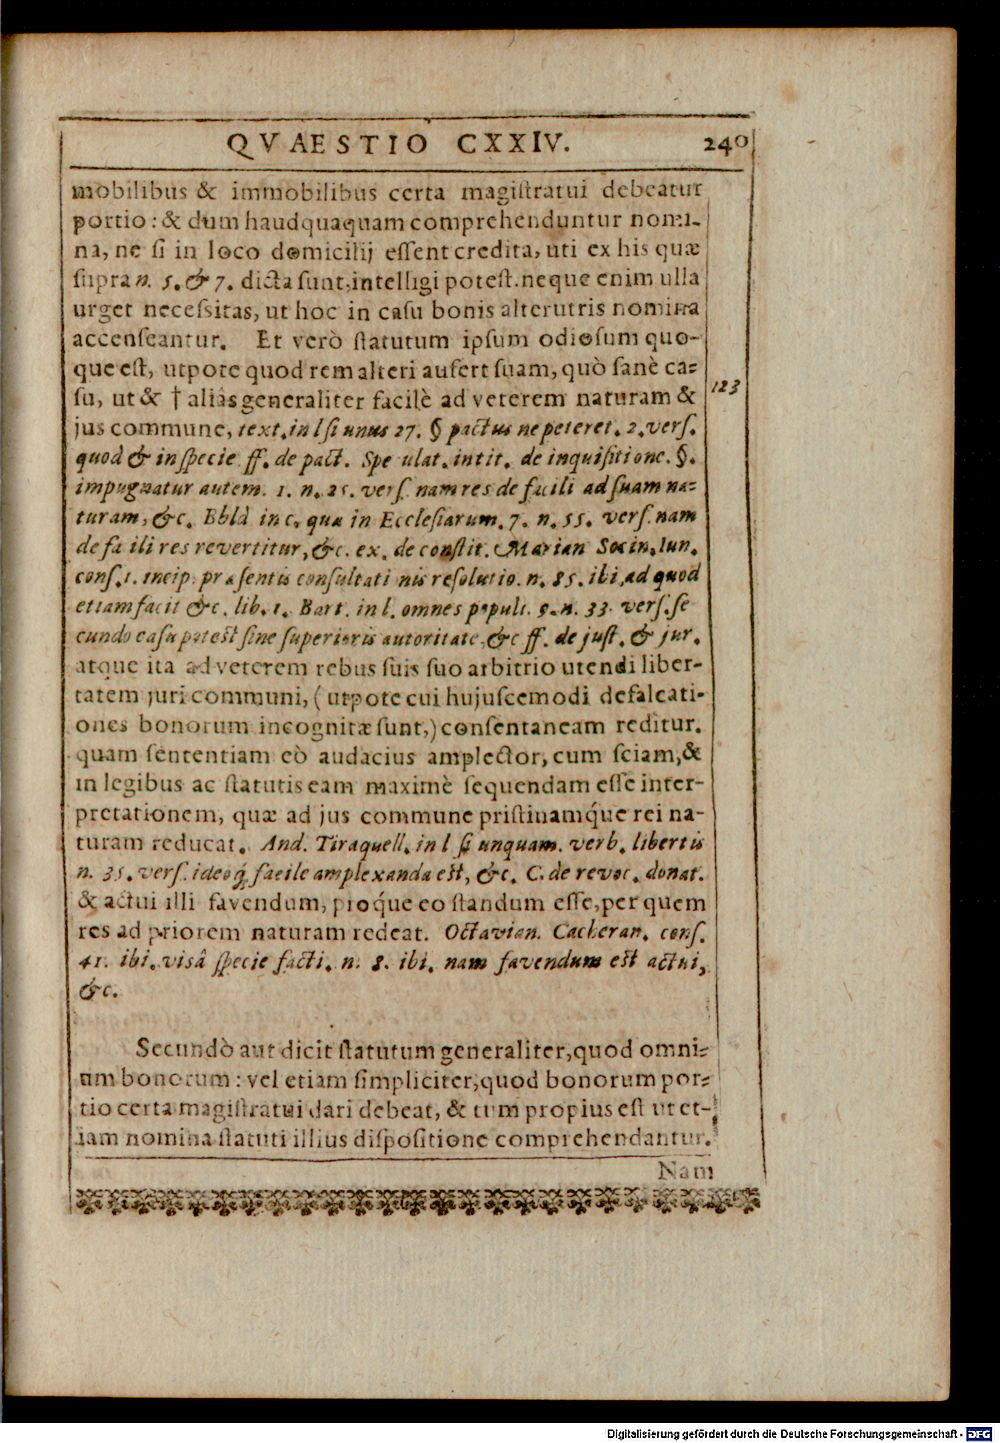 QVAESTIO CXXIV. 240
mobilibus & immobilibus certa magiſtratui debeatur
portio: & dum haudquaquam comprehenduntur nomi-
na, ne ſi in loco domicilij eſſent credita, uti ex his quæ
ſupra n. 5. & 7. dicta ſunt, intelligi poteſt. neque enim ulla
urget neceſſitas, ut hoc in caſu bonis alterutris nomina
accenſeantur. Et verò ſtatutum ipſum odioſum quo-
que eſt, utpote quod rem alteri aufert ſuam, quò ſanè ca-
ſu, ut & † aliâs generaliter facilè ad veterem naturam &
123
jus commune, text. in l ſi unus 27. § pactus ne peteret. 2. verſ.
quod & in ſpecie ff. de pact. Spe ulat. in tit. de inquiſitione. §.
impugnatur autem. 1. n. 25. verſ. nam res de facili ad ſuam na-
turam, &c. Bbld in c. quæ in Eccleſiarum. 7. n. 55. verſ. nam
de fa ili res revertitur, &c. ex. de conſtit. Marian Socin. Iun.
conſ. 1. incip. præſentis conſultati nis reſolutio. n. 85. ibi, ad quod
etiam facit &c. lib. 1. Bart. in l. omnes populi. 9. n. 33. verſ. ſe
cundo caſu poteſt ſine ſuperioris autoritate, &c ff. de juſt. & jur.
atque ita ad veterem rebus ſuis ſuo arbitrio utendi liber-
tatem juri communi, (utpote cui hujuſcemodi defalcati-
ones bonorum incognitæ ſunt,) conſentaneam reditur.
quam ſententiam eò audacius amplector, cum ſciam, &
in legibus ac ſtatutis eam maximè ſequendam eſſe inter-
pretationem, quæ ad jus commune priſtinamq́ue rei na-
turam reducat. And. Tiraquell. in l ſi unquam. verb. libertis
n. 35. verſ. ideoq́, facile amplexanda eſt, &c. C. de revoc. donat.
& actui illi favendum, proq́ue eo ſtandum eſſe, per quem
res ad priorem naturam redeat. Octavian. Cacheran. conſ.
41. ibi. viſâ ſpecie facti. n. 8. ibi. nam favendum eſt actui,
&c.
Secundò aut dicit ſtatutum generaliter, quod omni-
um bonorum: vel etiam ſimpliciter, quod bonorum por-
tio certa magiſtratui dari debeat, & tum propius eſt ut et-
iam nomina ſtatuti illius diſpoſitione comprehendantur.
Nam
Digitalisierung gefördert durch die Deutsche Forschungsgemeinschaft - DFG